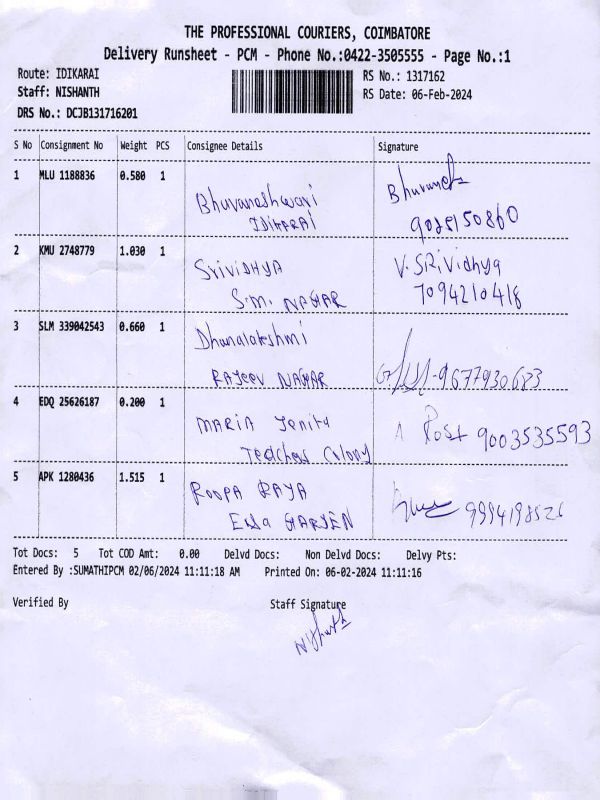 THE PROFESSIONAL COURIERS, COIMBATORE
Delivery Runsheet - PCM - Phone No.:0422-3505555 - Page No.:1
Route: IDIKARAI RS No.: 1317162
Staff: NISHANTH RS Date: 06-Feb-2024
DRS No.: DCJB131716201
S No Consignment No Weight PCS Consignee Details Signature
1 MLU 1188836 0.580 1
Bhuvaneshwari Bhuvanesh
IDIKARAI
2 KMU 2748779 1.030 1
Srividhya V.SRividhya
S.M. NAGAR 7094210418
3 SLM 339042543 0.660 1
Dhanalakshmi
RAJEEV NAGAR 9677930683
4 EDQ 25626187 0.200 1
MARIA Jenita Post 9003535593
Teachers Colony
5 APK 1280436 1.515 1
ROOPA RAYA
GARDEN
Tot Docs: 5 Tot COD Amt: 0.00 Delvd Docs: Non Delvd Docs: Delvy Pts:
Entered By :SUMATHIPCM 02/06/2024 11:11:18 AM Printed On: 06-02-2024 11:11:16
Verified By Staff Signature